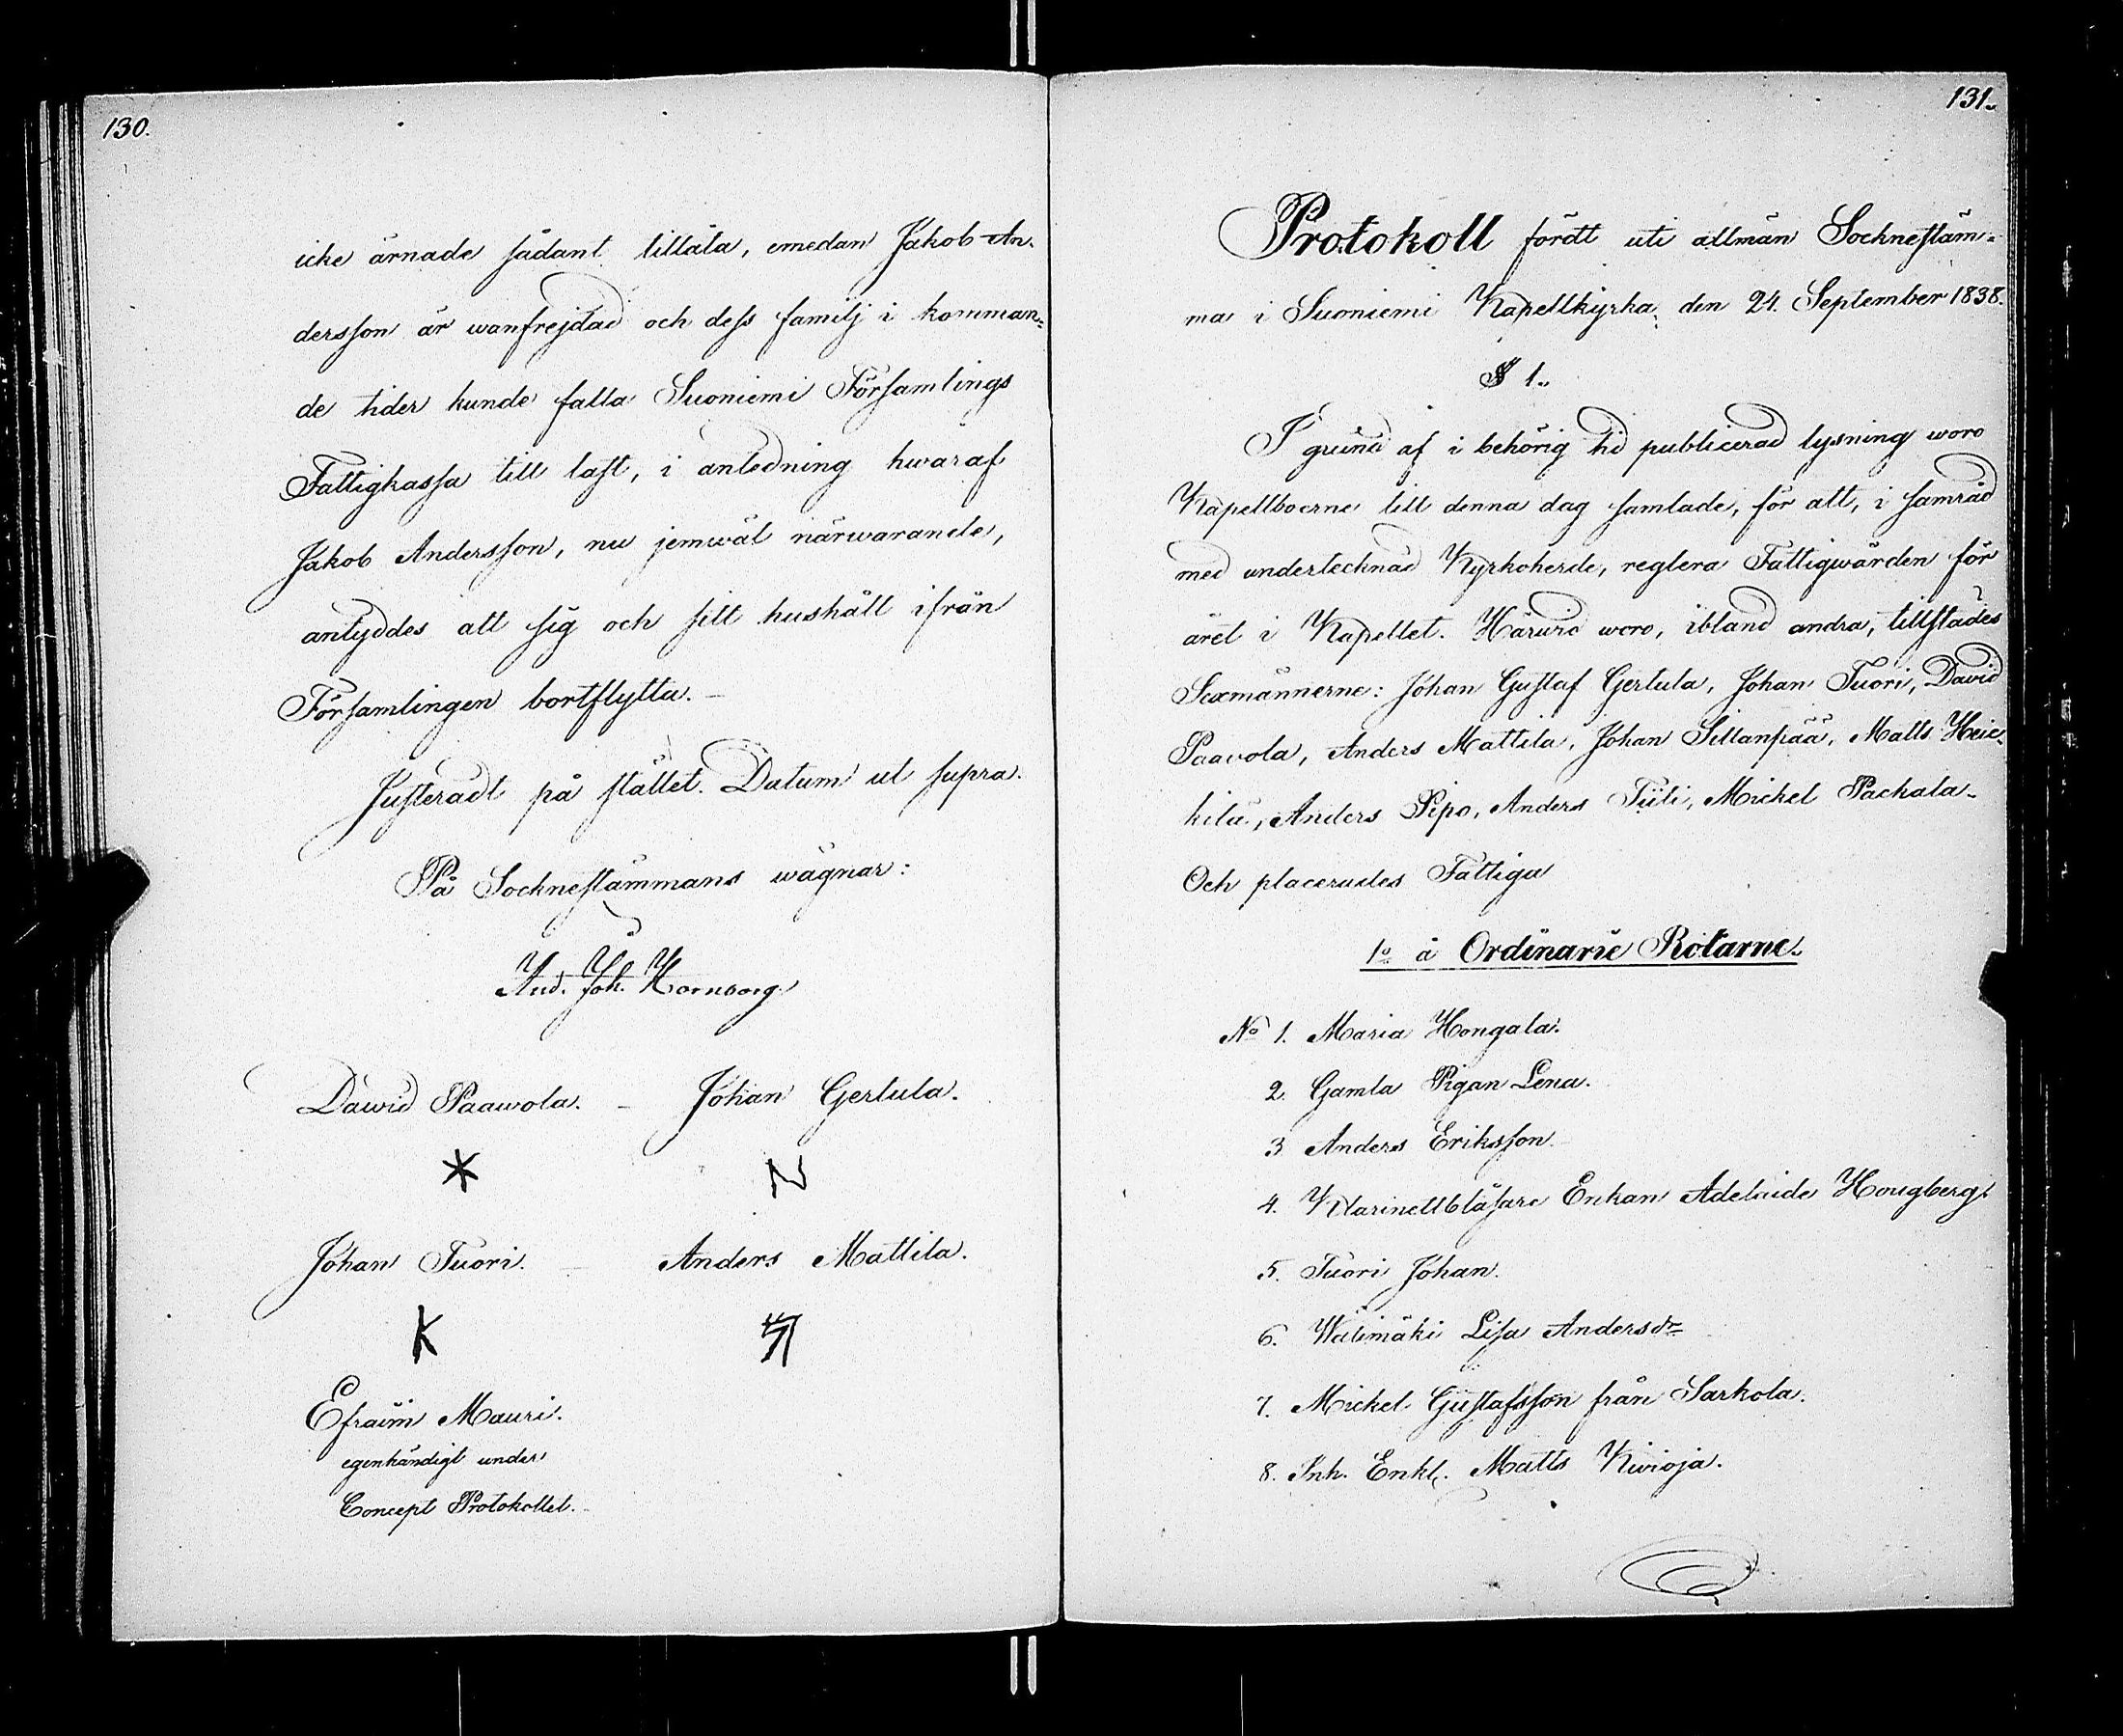 130.
icke ärnade sådant tillåta, emedan Jakob An-
dersson är wanfrejdad och dess familj i komman=
de tider kunde falla Suoniemi Församlings
Fattigkassa till last, i anledning hwaraf
Jakob Andersson, nu jemwäl närwarande,
antyddes att sig och sitt hushåll ifrån
Församlingen bortflytta. –
Justeradt på stället. Datum ut supra.
På Sockneståmmans wägnar:
And. Joh. Hornborg.
Dawid Paawola. – Johan Gerlula.
Johan Tuori. – Anders Mattila.
Efraim Mauri.
egenhändigt under
Concept Protokollet.
131.
Protokoll fördt uti allmän Socknestäm=
ma i Suoniemi Kapellkyrka, den 24. September 1838.
§ 1.
I grund af i behörig tid publicerad lysning woro
Kapellboerne till denna dag samlade, för att, i samråd
med undertecknad Kyrkoherde, reglera Fattigwården för
året i Kapellet. Härwid woro, ibland andra, tillstädes
Sexmännerne: Johan Gustaf Gerlula, Johan Tuori, David
Paavola, Anders Mattila, Johan Sillanpää, Matts Heic-
kilä, Anders Pipo, Anders Tiili, Mickel Packala.
Och placerades Fattiga
1º å Ordinarie Rotarne.
No 1. Maria Hongala.
2. Gamla Pigan Lena.
3 Anders Eriksson
4. Klarinettblåsare Enkan Adelaide Hougberg
5. Tuori Johan.
6. Wälimäki Lisa Andersdr
7. Mickel Gustafsson från Sarkola.
8. Inh. Enkl. Matts Kivioja.